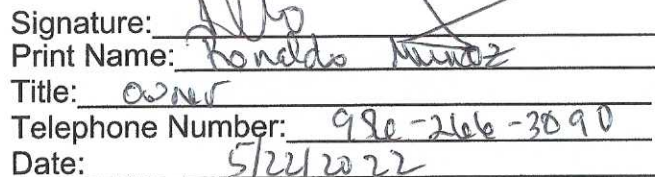 Signature:
Print Name: Ronaldo Munoz
Title: owner
Telephone Number: 980-266-3090
Date: 5/22/2022